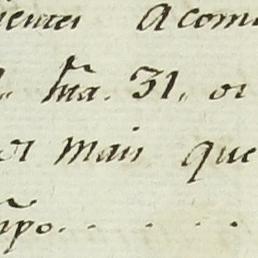 ientes Acom
hũa. 31, or
ot mais que
mpo. . . . .